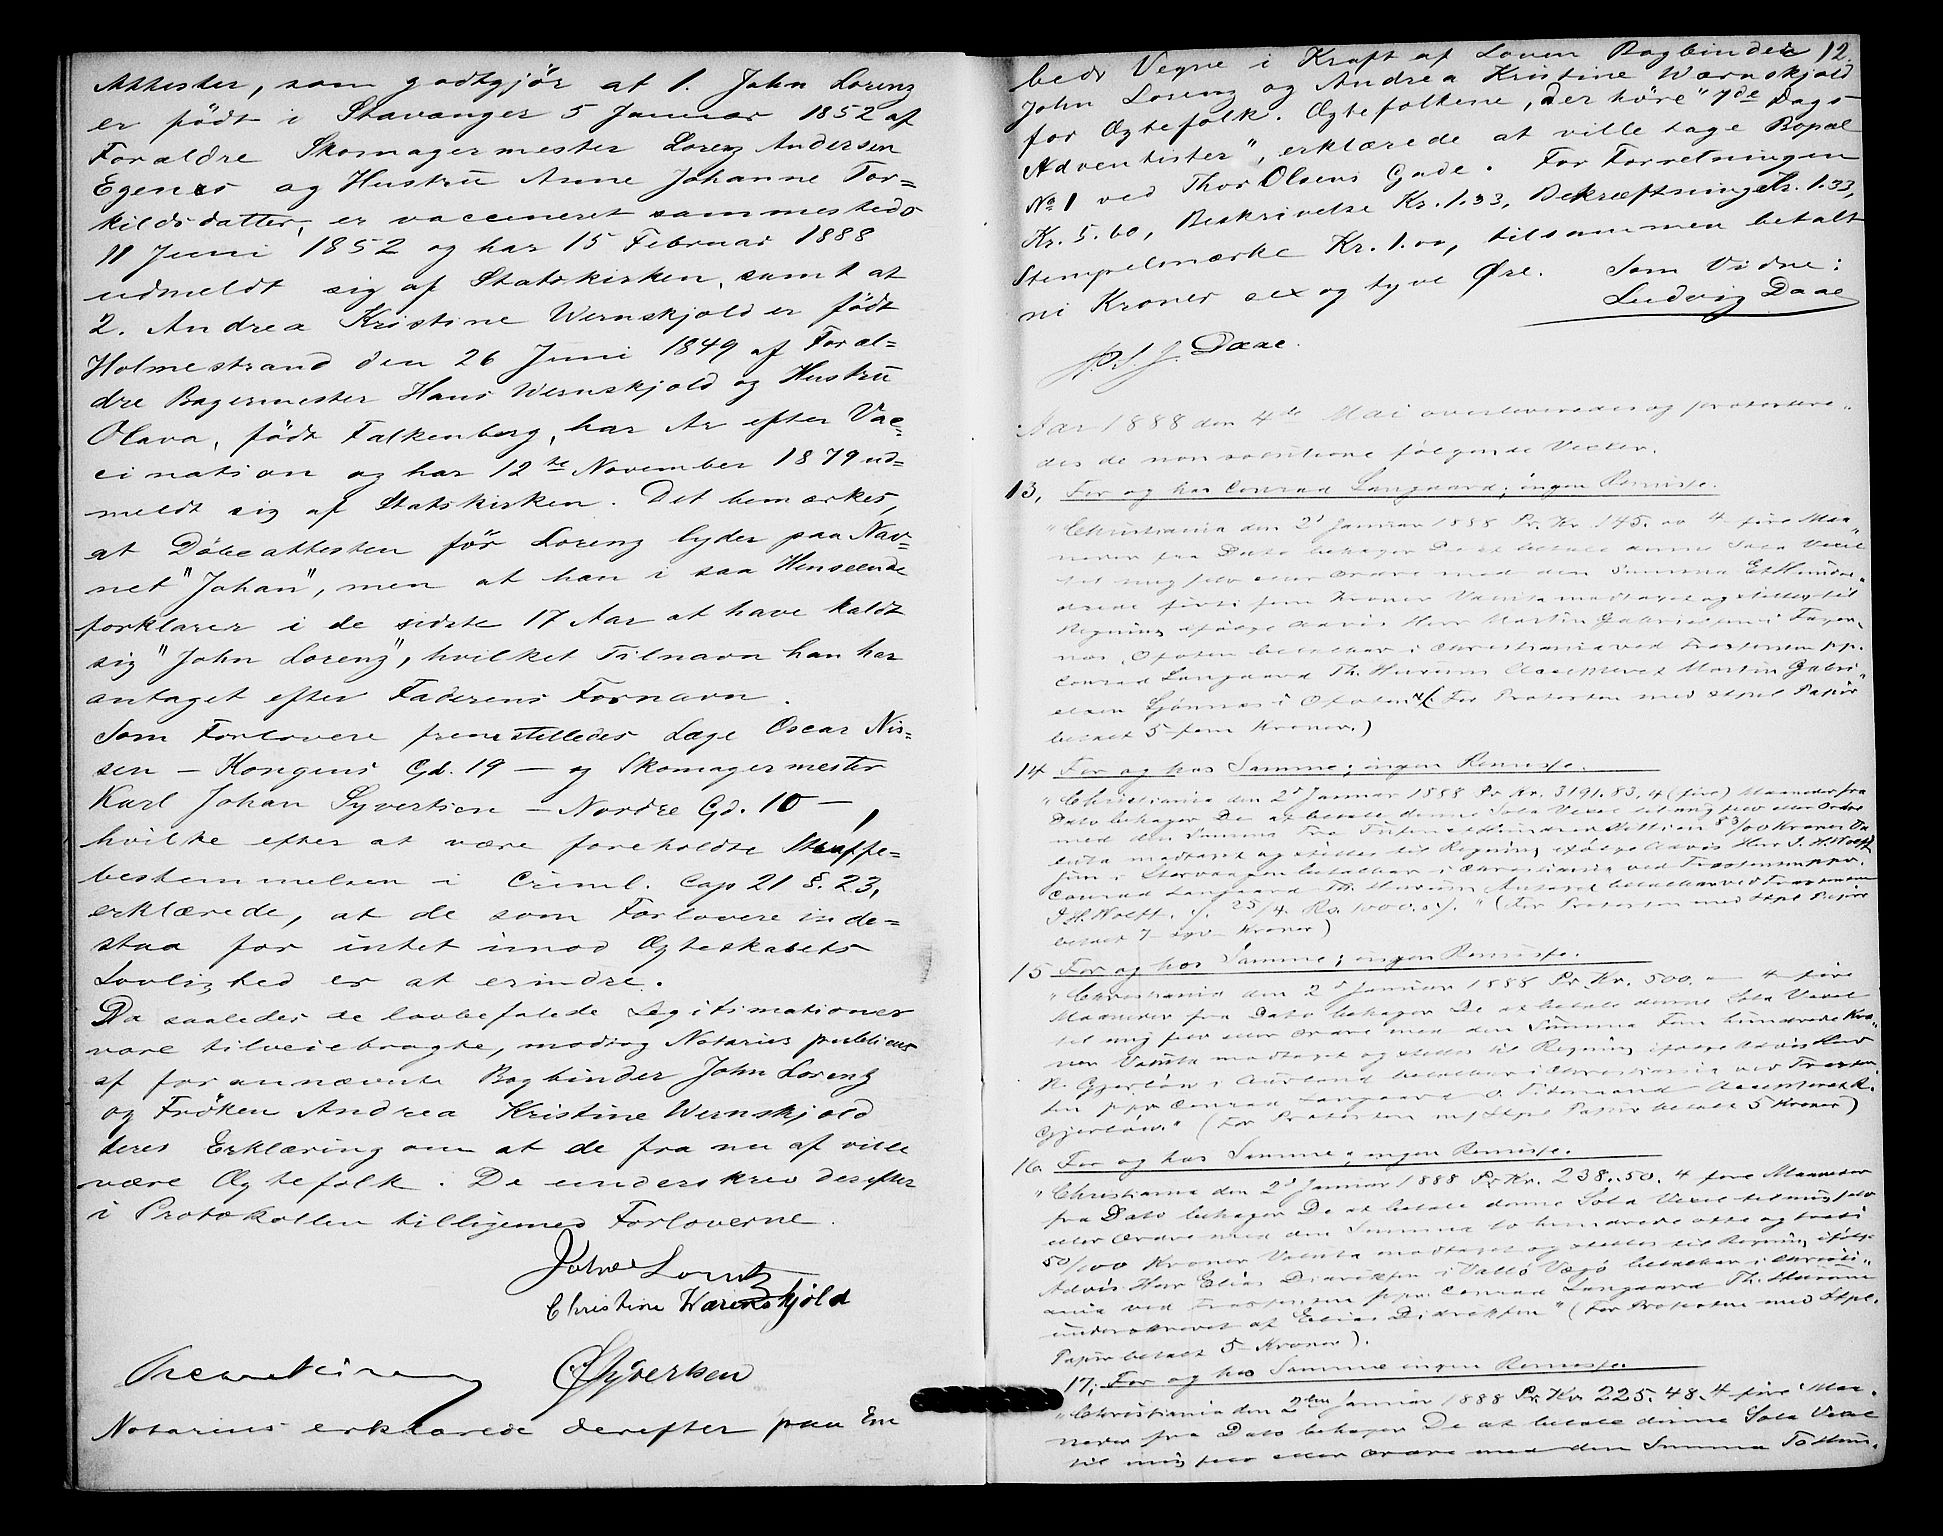 Attester, som godtgjør at 1. John Lorenz
er født i Stavanger 5 Januar 1852 af
Forældre Skomagermester Lorenz Andersen
Egenes og Hustru Anne Johanne Tor=
kildsdatter, er vaccineret sammesteds
11 Juni 1852 og har 15 Februar 1888
udmeldt sig af Statskirken, samt at
2. Andrea Kristine Wernskjold er født
Holmestrand den 26 Juni 1849 af Foræl=
dre Bagermester Hans Wernskjold og Hustru
Olava, født Falkenberg, har Ar efter Vac=
cination og har 12te November 1879 ud=
meldt sig af Statskirken. Det bemærkes,
at Døbeattesten for Lorenz lyder paa Nav=
net "Johan", men at han i saa Henseende
forklarer i de sidste 17 Aar at have kaldt
sig "John Lorenz", hvilket Tilnavn han har
antaget efter Faderens Fornavn.
Som Forlovere fremstilledes Læge Oscar Nis=
sen – Kongens Gd. 19 – og Skomagermester
Karl Johan Syvertsen – Nordre Gd. 10 –,
hvilke efter at være foreholdte Straffe=
bestemmelsen i Criml. Cap 21 §. 23,
erklærede, at de som Forlovere inde=
staa for intet imod Ægteskabets
Lovlighed er at erindre.
Da saaledes de lovbefalede Legitimationer
vare tilveiebragte, modtog Notarius publicus
af forannævnte Bogbinder John Lorenz
og Frøken Andrea Kristine Wernskjold
deres Erklæring om at de fra nu af ville
være Ægtefolk. De underskrev derefter
i Protokollen tilligemed Forloverne.
John Lorentz
Christine Wærenskjold
Oscar Nissen
Syvertsen
Notarius erklærede derefter paa Em
beds Vegne i Kraft af Loven Bogbinder 12.
John Lorenz og Andrea Kristine Wærnskjold
for Ægtefolk. Ægtefolkene, der høre "7de Dags
Adventister", erklærede at ville tage Bopæl
No 1 ved Thor Olsens Gade. For Forretningen
Kr. 5.60, Beskrivelse Kr. 1.33, Bekræftning Kr. 1.33,
Stempelmærke Kr. 1.00, tilsammen betalt
ni Kroner sex og tyve Øre. Som Vidne:
Ludvig Daae
Daae.
Aar 1888 den 4de Mai overleveredes og protestere=
des de non solutione følgende Vexler.
13, For og hos Conrad Langaard; ingen Remisse.
"Christiania den 2d Januar 1888 Pr. Kr. 145.00 4 fire Maa=
neder fra Dato behager De at betale denne Sola Vexel
til mig selv eller Ordre med den Summa Et Hun=
drede førti fem Kroner Valuta modtaget og stilles til
Regning ifølge Advis Herr Martin Gabrielsen i
Ofoten betalbar i Christiania ved pp.
Conrad Langaard Th. Accepteret Martin Gabri=
elsen i Ofoten (For Protesten med Stpl Papir
betalt 5 fem Kroner.)
14 For og hos Samme; ingen Remisse.
"Christiania den 2d Januar 1888 Pr Kr. 3191.83, 4 (fire) Maaneder fra
Dato behager De at betale denne Sola Vexel til mig selv eller Ordre
med den Summa Tre Tusen et Hundrede Nitti en 83/100 Kroner Va=
luta modtaget og stilles til Regning ifølge Advis Herr J. H. Wolff
betalbar i Christiania ved
Conrad Langaard Th. betalbar ved
J H. Wolff. 25/4. Rs. 1000. " (For Protesten med Stpl Papir
betalt 7 syv Kroner)
15 For og hos Samme; ingen Remisse.
"Christiania den 2d Januar 1888 Pr. Kr. 500.– 4 fire
Maaneder fra Dato behager De at betale denne Sola Vexel
til mig selv eller Ordre med den Summa Fem hundrede Kro=
ner Valuta modtaget og stilles til Regning ifølge Advis Herr
Gjerløw i Aurland betalbar i Christiania ved
ppr Conrad Langaard Accepteret
Gjerløw." (For Protesten m/ Stpl Papir betalt 5 Kroner)
16. For og hos Samme; ingen Remisse.
"Christiania den 2d Januar 1888 Pr Kr. 238.50. 4 fire Maaneder
fra Dato behager De at betale denne Sola Vexel til mig selv
eller Ordre med den Summa to hundrede otte og treti
50/100 Kroner Valuta modtaget og stilles til Regning ifølge
Advis Herr Elias Didriksen i betalbar i Christi=
ania ved ppr. Conrad Langaard Th.
underskrevet af Elias Didriksen" (For Protesten med Stpl.
Papir betalt 5 Kroner).
17; For og hos Samme ingen Remisse.
"Christiania den 2den Januar 1888 Pr. Kr 225.48. 4 fire Maa=
neder fra Dato behager De at betale denne Sola Vexel
til mig selv eller Ordre med den Summa To Hun=